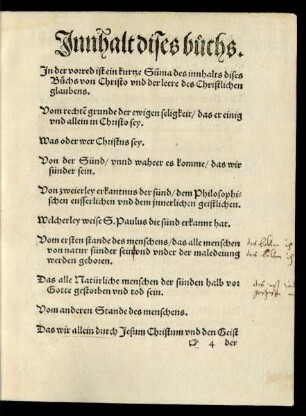 Innhalt dises bůchs.
In der vorred ist ein kurtze Sũma des innhalts dises
Bůchs von Christo vnd der leere des Christlichen
glaubens.
Vom rechtẽ grunde der ewigen seligkeit/ das er einig
vnd allein in Christo sey.
Was oder wer Christus sey.
Von der Sünd/ vnnd waher es komme/ das wir
sünder sein.
Von zweierley erkantnus der sünd/ dem Philosophi-
schen eusserlichen vnd dem innerlichen geistlichen.
Welcherley weise S. Paulus die sünd erkannt hat.
Vom ersten stande des menschens/ das alle menschen
von natur sünder sein vnd vnder der maledeiung
werden geboren.
Das alle Natürliche menschen der sünden halb vor
Gotte gestorben vnd tod sein.
Vom anderen Stande des menschens.
Das wir allein durch Jesum Christum vnd den Geist
4 der